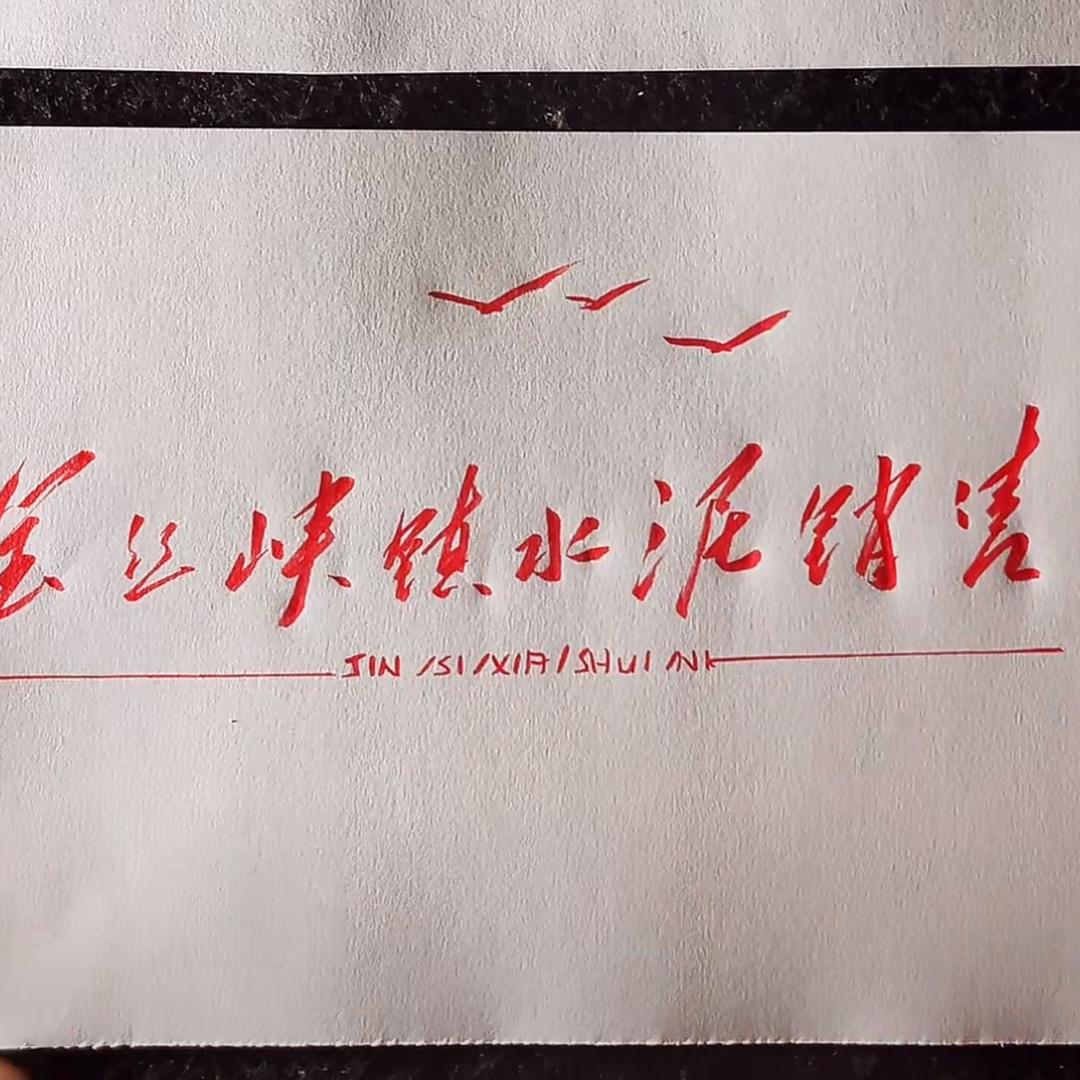 金丝峡镇水泥销售
JIN/SI/XIA/SHUI/NI